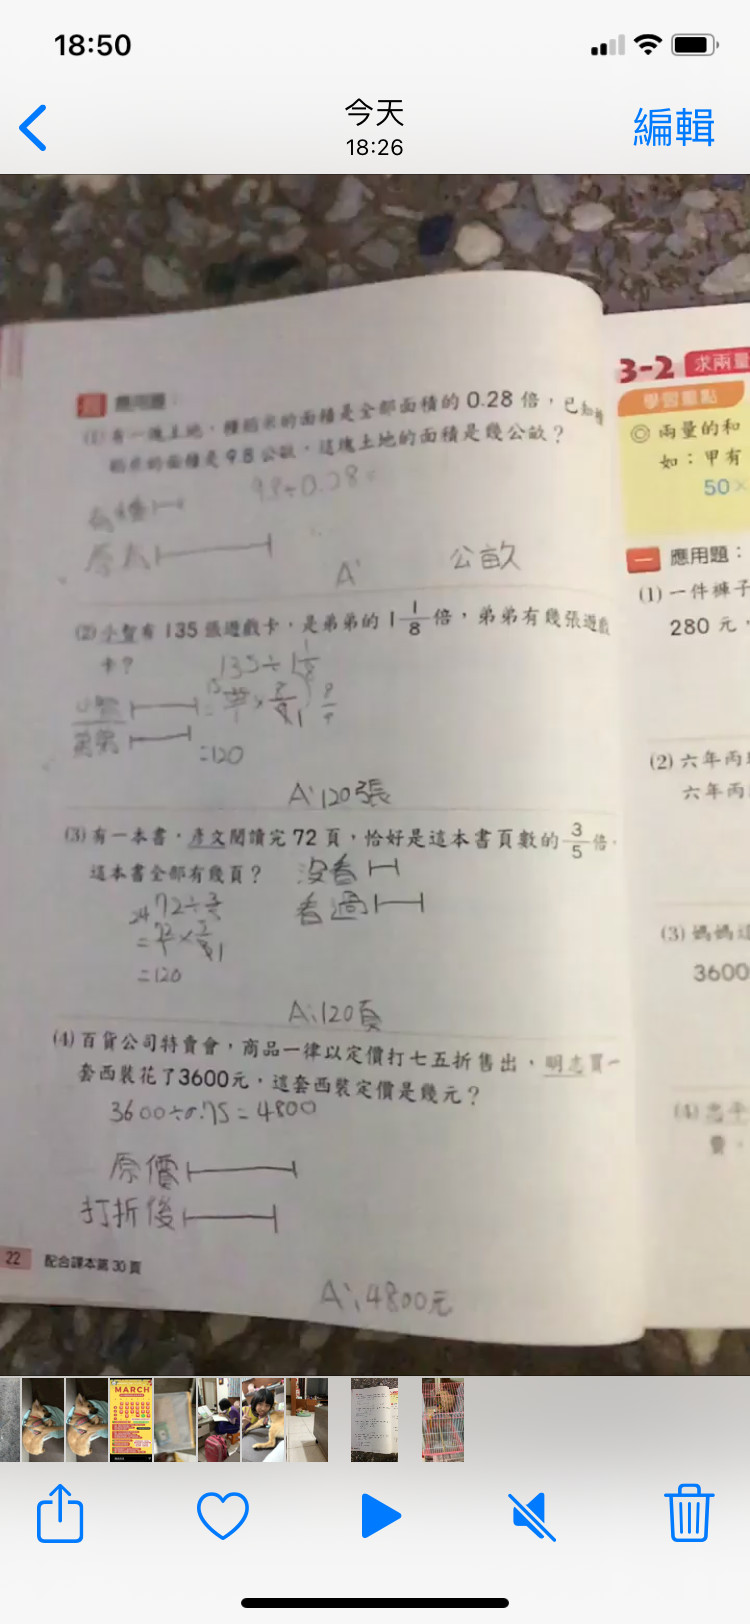 18:50
今天
18:26
編輯
應用題：
(1)有一塊土地，種稻米的面積是全部面積的0.28倍，已知種
稻米的面積是98公畝，這塊土地的面積是幾公畝？
98÷0.28=
原本
A: 公畝
(2)小智有135張遊戲卡，是弟弟的1 1/8倍，弟弟有幾張遊戲
卡？
135÷1 1/8
小智
弟弟
=120
A:120張
(3)有一本書，彥文閱讀完72頁，恰好是這本書頁數的3/5倍，
這本書全部有幾頁？
沒看
看過
72÷3/5
=120
A:120頁
(4)百貨公司特賣會，商品一律以定價打七五折售出，明志買一
套西裝花了3600元，這套西裝定價是幾元？
3600÷0.75=4800
原價
打折後
A:4800元
22 配合課本第30頁
3-2 求兩量
學習重點
◎兩量的和
如：甲有
50×
一 應用題：
(1)一件褲子
280元，
(2)六年丙
六年丙
(3)媽媽這
3600
(4)忠平
費，
MARCH